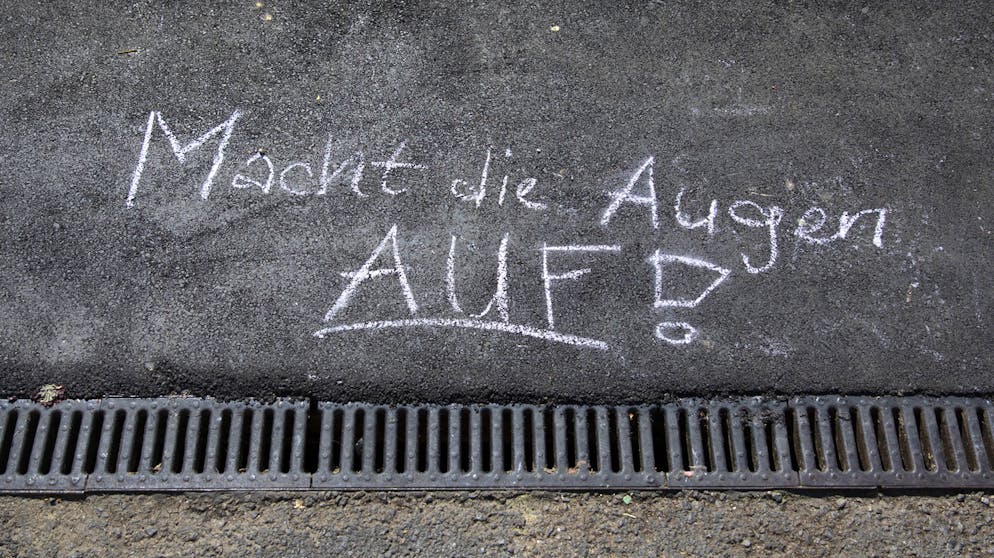 Macht die Augen
AUF!